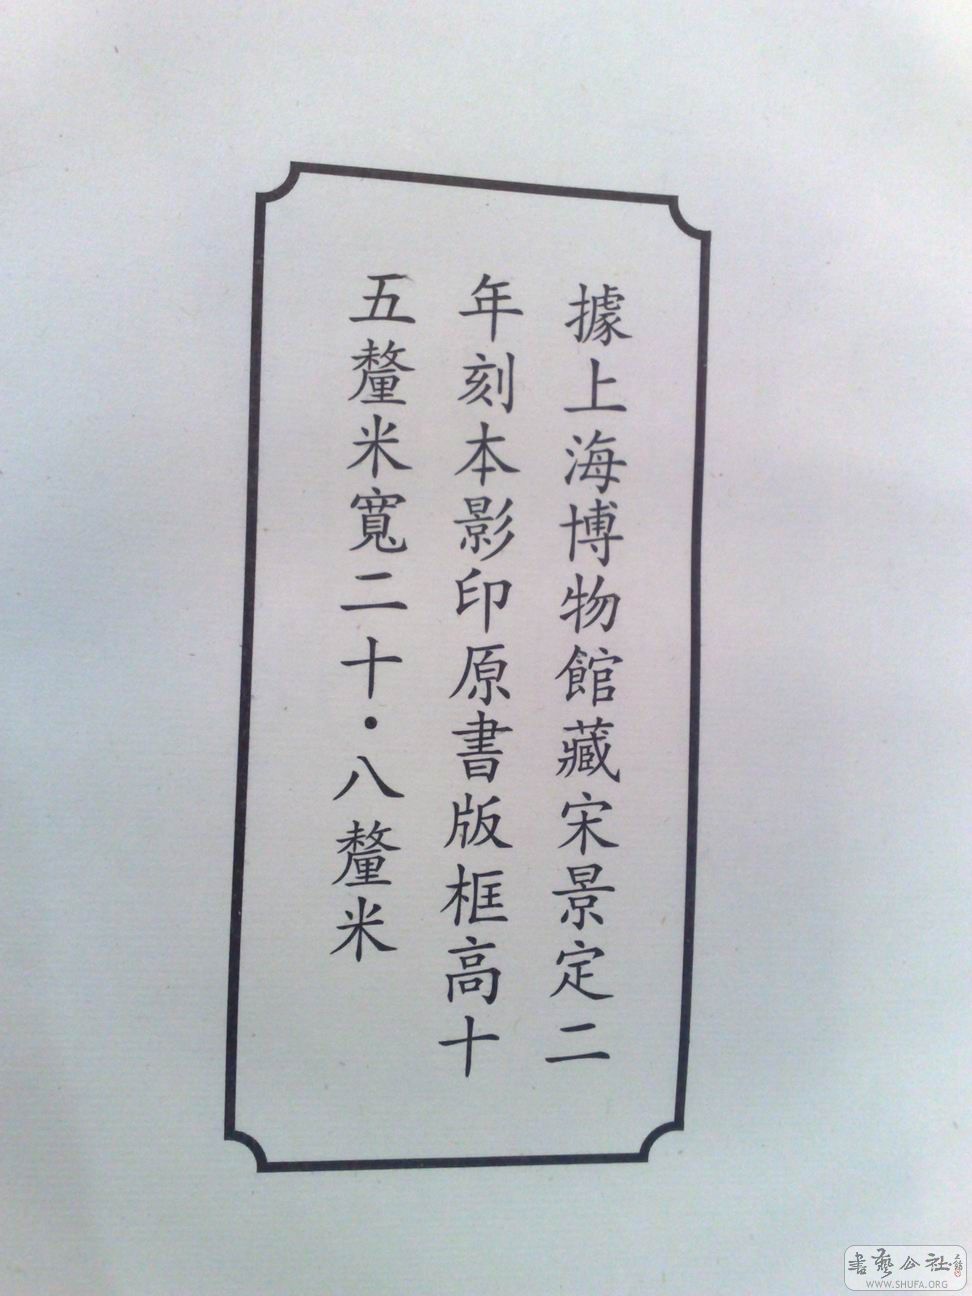 據上海博物館藏宋景定二
年刻本影印原書版框高十
五釐米寬二十·八釐米
書藝公社
WWW.SHUFA.ORG